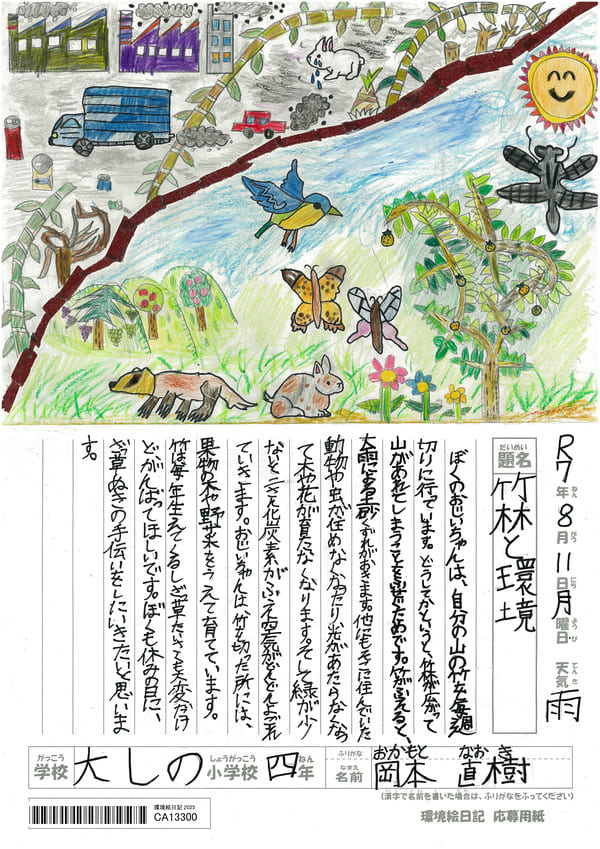 R7年8月11日月曜日 天気 雨
ねん がつ にち ようび てんき
だいめい
題名 竹林と環境
ぼくのおじいちゃんは、自分の山の竹を毎週
切りに行っています。どうしてかというと、竹林が広がって
山があれてしまうことを防ぐためです。竹がふえると、
大雨による土砂くずれがおきます。他にもそこに住んでいた
動物や虫が住めなくなったり、光があたらなくなっ
て木や花が育たなくなります。そして緑が少
ないと二さん化炭素がふえ空気がどんどんよごれ
ていきます。おじいちゃんは、竹を切った所には、
果物の木や野菜をうえて育てています。
竹は毎年生えてくるしざっ草もたいさくも大変だけ
どがんばってほしいです。ぼくも休みの日に、
ざっ草ぬきの手伝いをしにいきたいと思いま
す。
がっこう しょうがっこう ねん
学校 大しの小学校 四年
ふりがな おかもと なおき
なまえ
名前 岡本 直樹
(漢字で名前を書いた場合は、ふりがなをふってください)
環境絵日記 2025
CA13300
環境絵日記 応募用紙